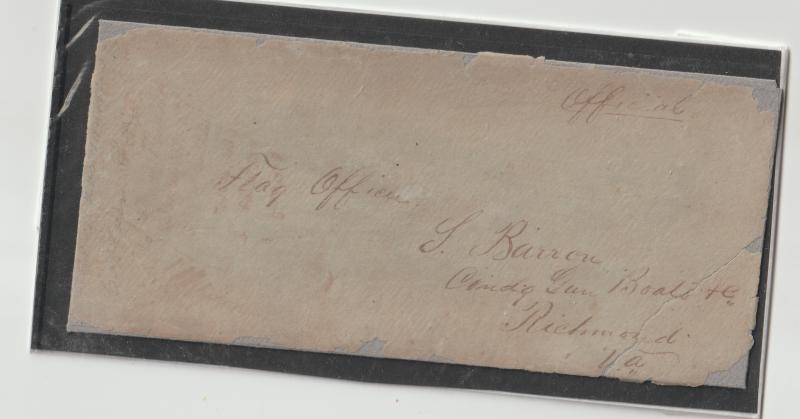 Official
Flag Officer
S. Barron
Comdg Gun Boats &c
Richmond
Va